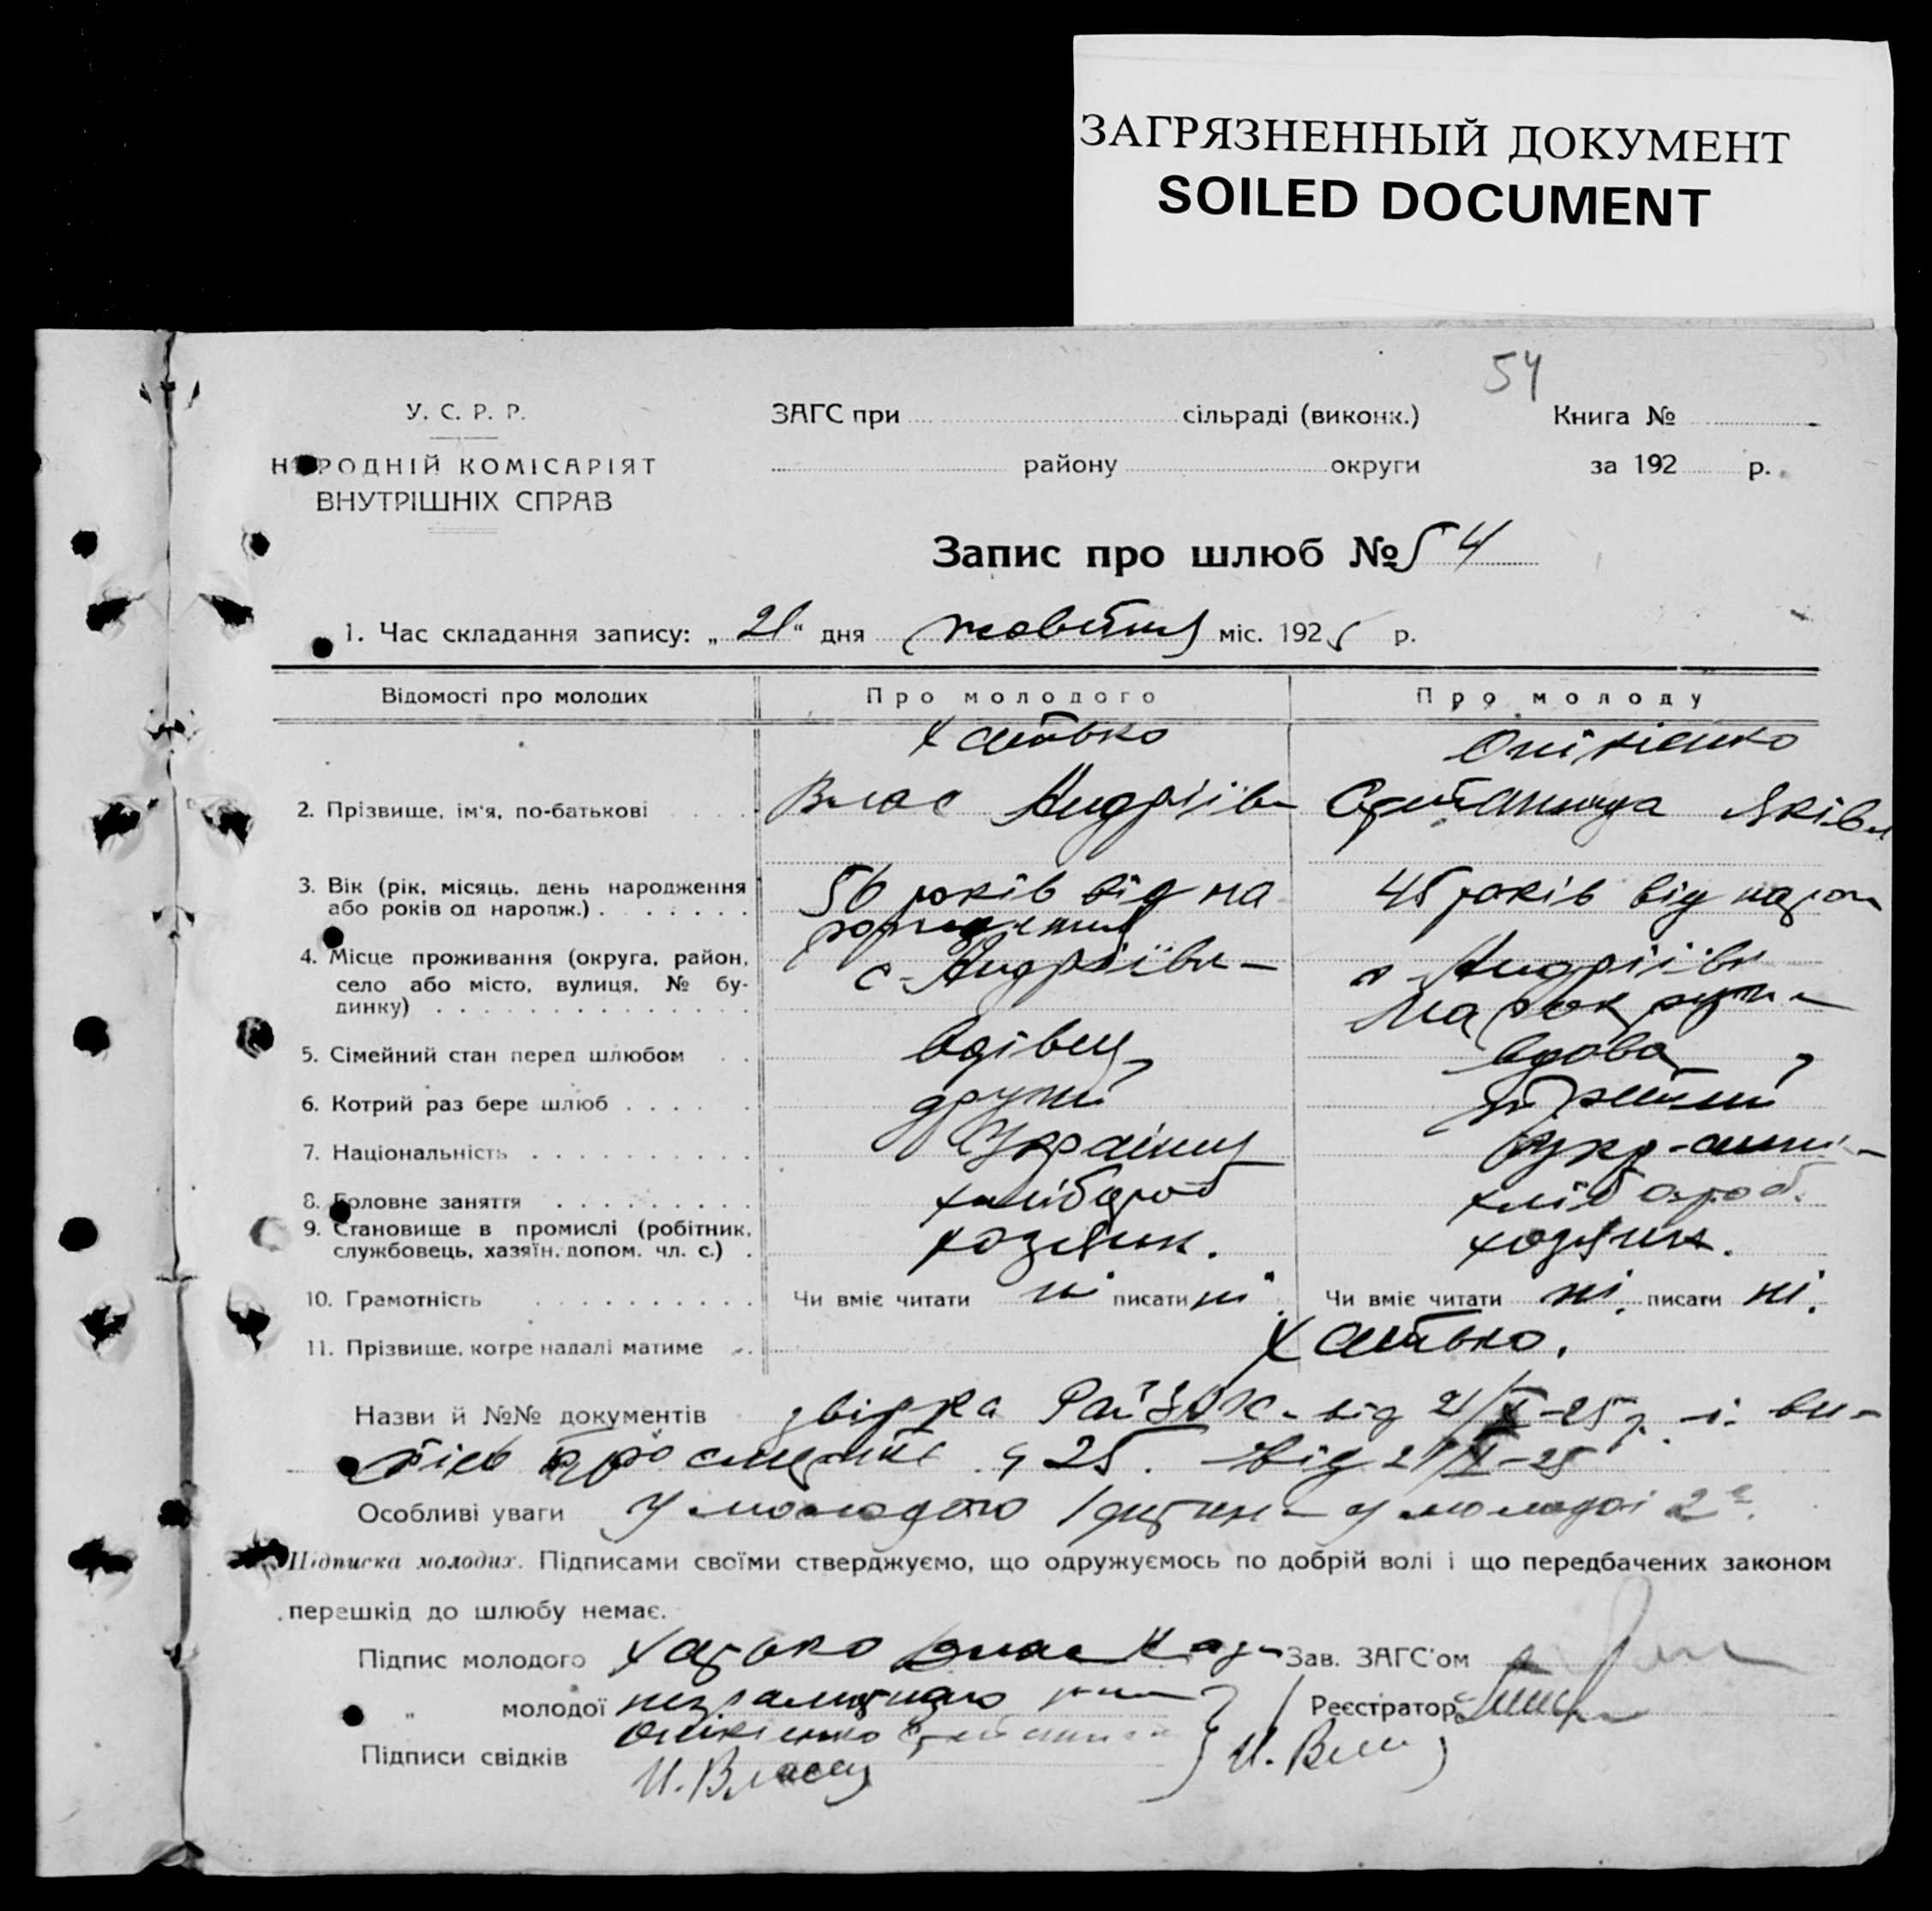 ЗАГРЯЗНЕННЫЙ ДОКУМЕНТ
SOILED DOCUMENT
54
У. С. Р. Р.
НАРОДНІЙ КОМІСАРІЯТ
ВНУТРІШНІХ СПРАВ
ЗАГС при сільраді (виконк.)
району округи
Книга №
за 192 р.
Запис про шлюб № 54
1. Час складання запису: „21“ дня жовтня міс. 1925 р.
Відомості про молодих Про молодого Про молоду
2. Прізвище, ім'я, по-батькові
Хатько
Влас Андріїв
Онікієнко
Яківл
3. Вік (рік, місяць, день народження
або років од народж.)
56 років від на
родження
45 років від народ
4. Місце проживання (округа, район,
село або місто, вулиця, № бу-
динку)
с. Андріївк
с. Андріївк
5. Сімейний стан перед шлюбом вдівец вдова
6. Котрий раз бере шлюб другий третий
7. Національність Українец
8. Головне заняття хлібороб хлібороб.
9. Становище в промислі (робітник,
службовець, хазяїн, допом. чл. с.)
хозяин. хозяин.
10. Грамотність Чи вміє читати ні писати ні. Чи вміє читати ні. писати ні.
11. Прізвище, котре надалі матиме Хатько.
Назви й №№ документів від 21/X-25 р. і ви-
про смерть ч 25. від 21/X-25
Особливі уваги У молодого 1 дитин у молодої 2є.
Підписка молодих. Підписами своїми стверджуємо, що одружуємось по добрій волі і що передбачених законом
перешкід до шлюбу немає.
Підпис молодого Хатько Влас
„ молодої
Онікієнко
Підписи свідків
Зав. ЗАГС'ом
Реєстратор